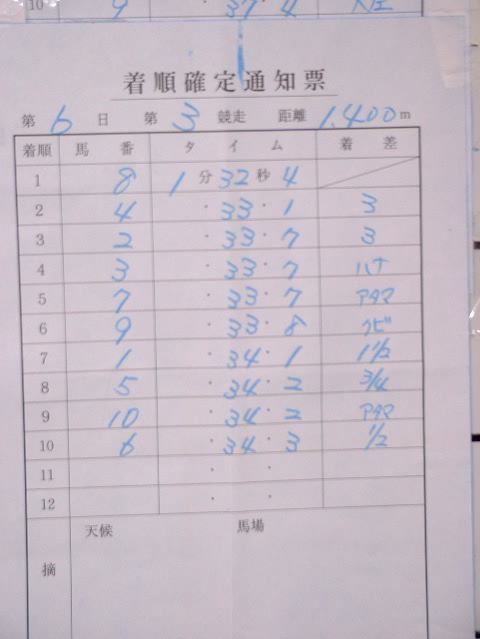 10 9 37・4 大差
着順確定通知票
第 6 日 第 3 競走 距離 1.400 m
着順 馬番 タイム 着差
1 8 1分32秒4
2 4 ・33・1 3
3 2 ・33・7 3
4 3 ・33・7 ハナ
5 7 ・33・7 アタマ
6 9 ・33・8 クビ
7 1 ・34・1 1 1/2
8 5 ・34・2 3/4
9 10 ・34・2 アタマ
10 6 ・34・3 1/2
11 ・ ・
12 ・ ・
天候 馬場
摘